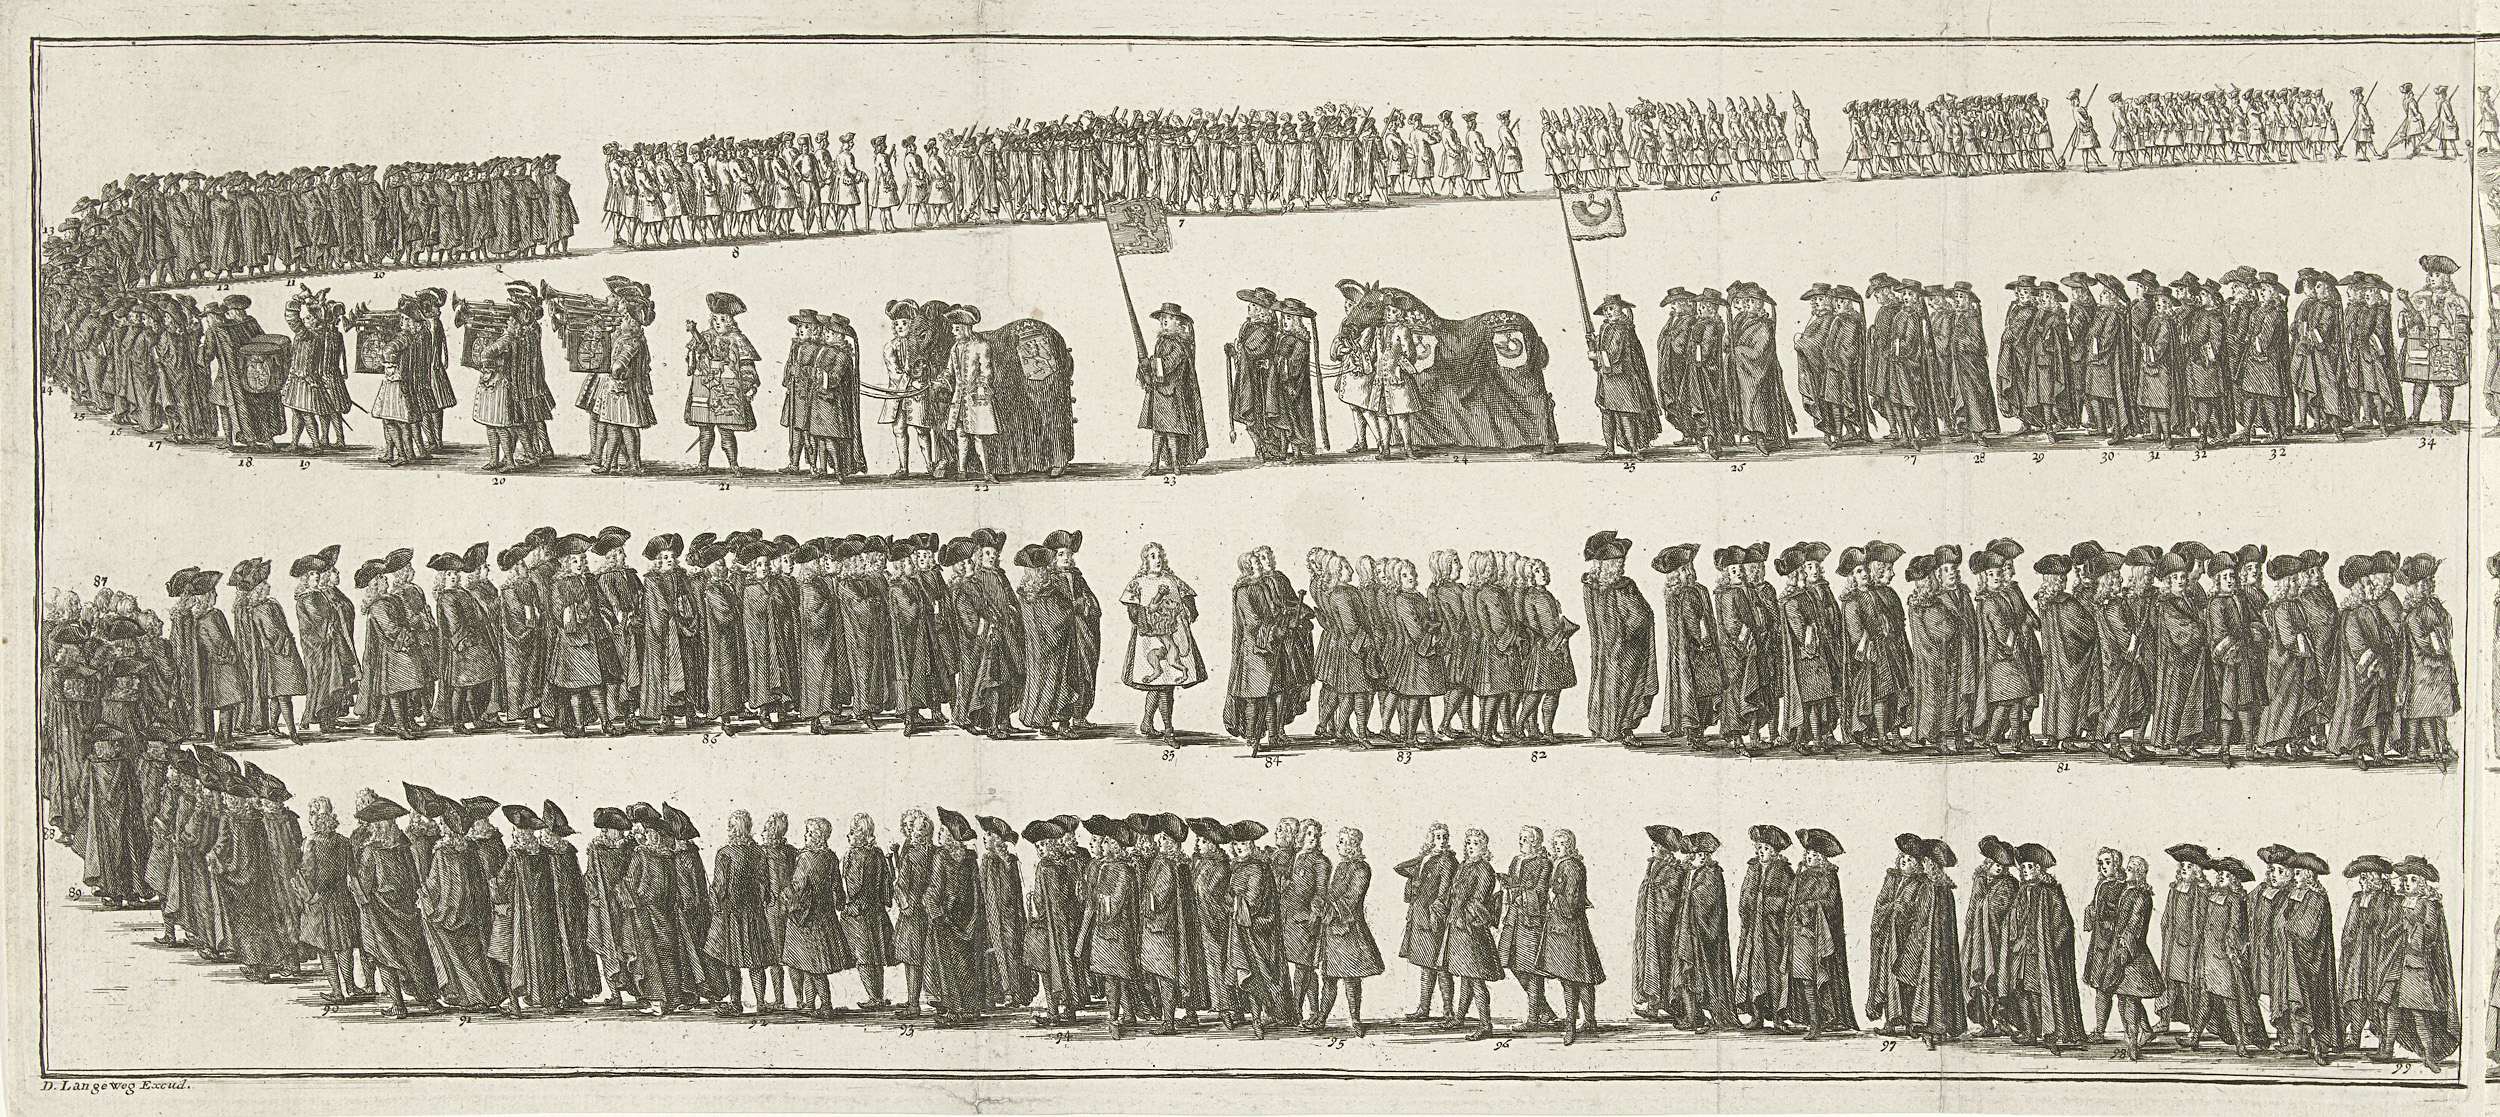 6
7
8
9
10
11
12
13
14
15
16
17
18
19
20
21
22
23
24
25
26
27
28
29
30
31
32
32
34
87
86
85
84
83
82
81
88
89
90
91
92
93
94
95
96
97
98
99
D. Langeweg Excud.